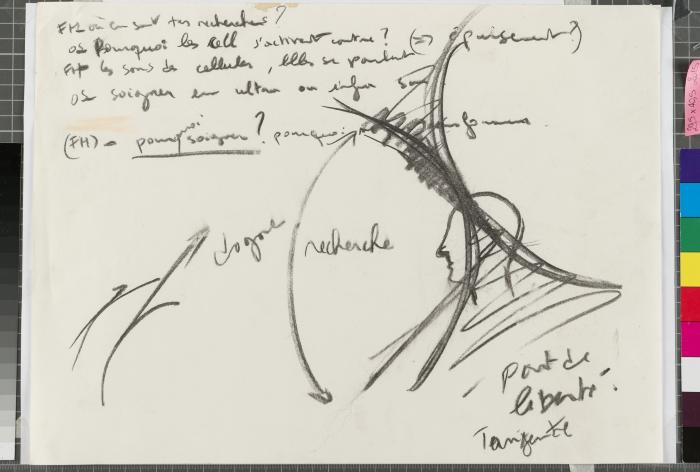 FH où en sont tes recherches ?
OS Pourquoi les cell s'activent contre ? (=> épuisement ?)
FH les sons des cellules, Elles se
OS soigner en ultra ou infra son
(FH) - pourquoi soigner ? pourquoi
recherche
Part de
liberté.
Tangente